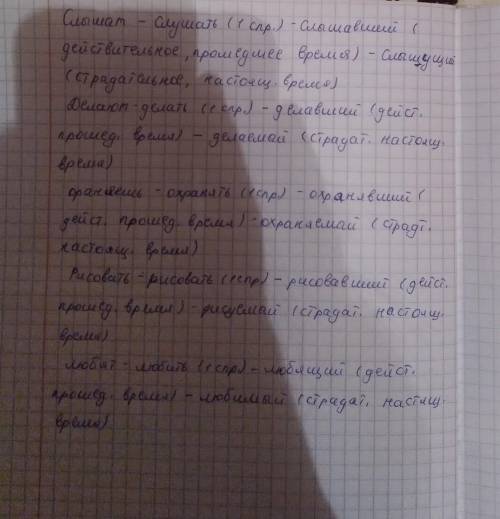 Слышат - Слушать (1 спр.) - Слышавший (
действительное, прошедшее время) - Слыщущий
(страдательное, настоящ. время)
Делают - делать (1 спр) - делавший (дейст.
прошед. время) - делаемай (страдат. настоящ.
время)
ораняешь - охранять (1 спр) - охранявший (
дейст. прошед. время) - охраняемай (страдт.
настоящ. время)
Рисовать - рисовать (1 спр) - рисовавший (дейст.
прошед. время) - рисуемай (страдат. настоящ.
время)
любят - любить (1 спр) - любящий (дейст.
прошед. время) - любимый (страдат. настоящ.
время)